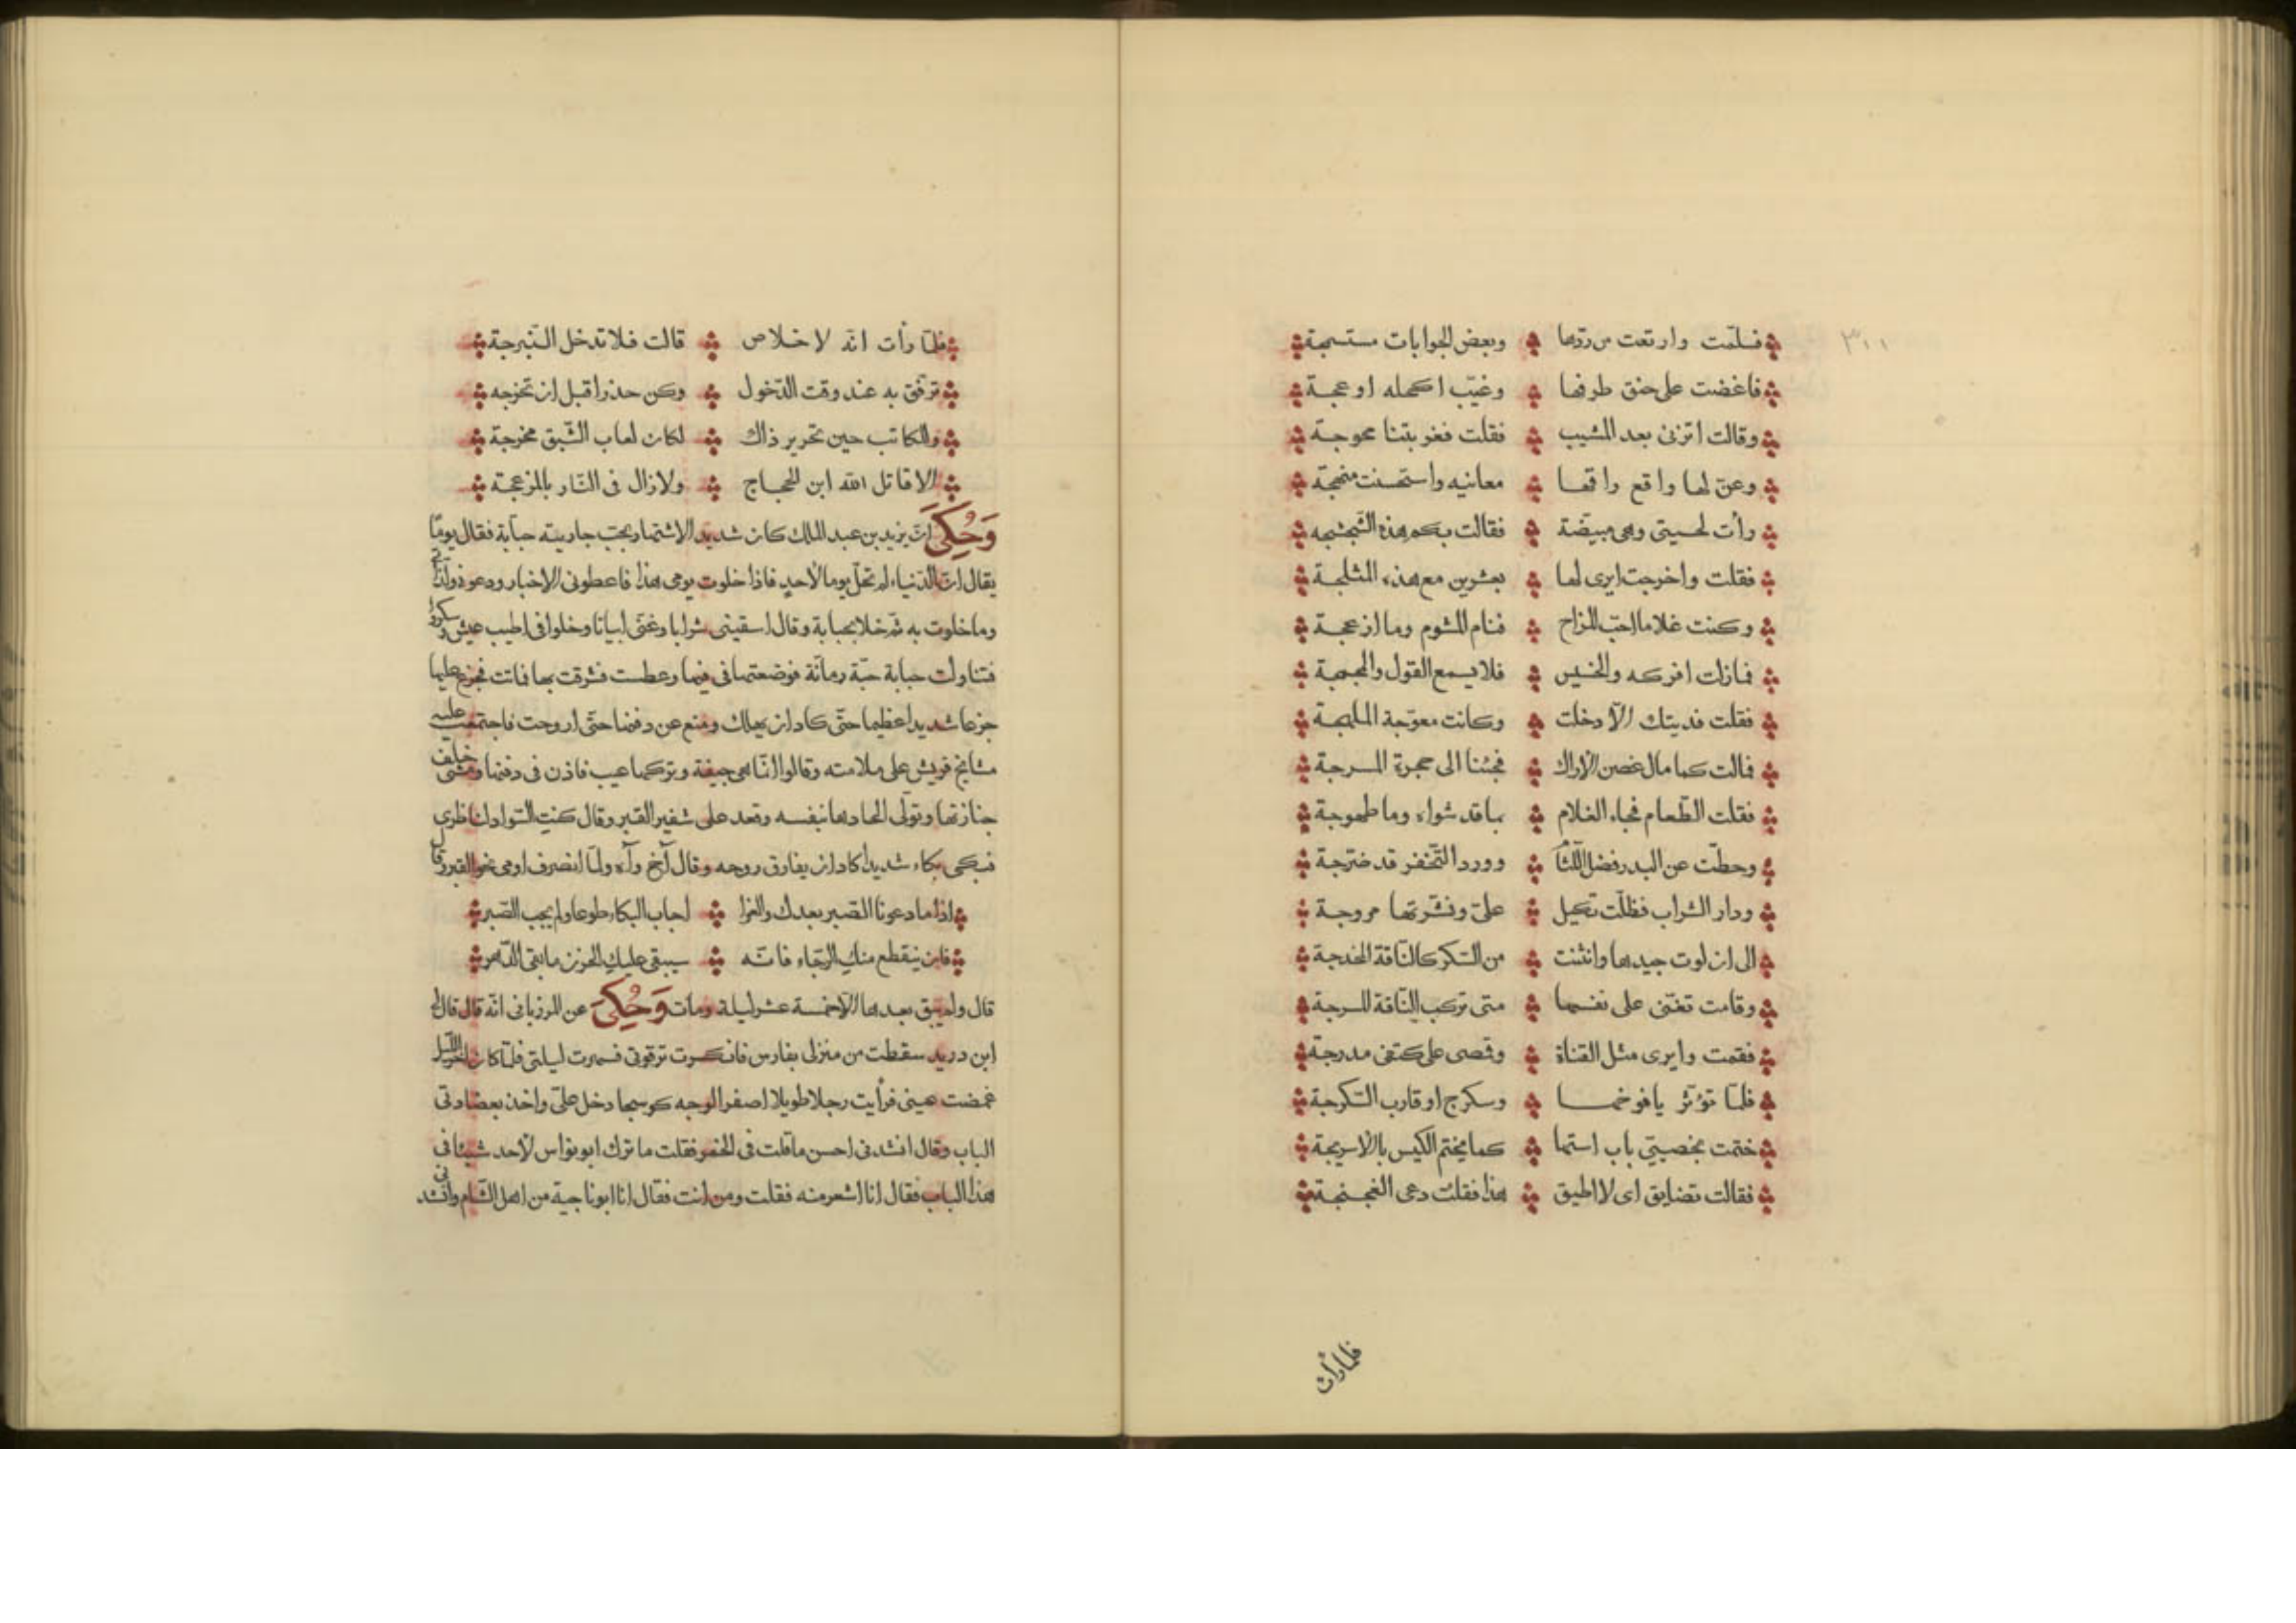 ٣٠١
فسلّمت وارتعت من ردّها وبعض الجوابات مستسمجة
فاغضت على حنق طرفها وغيّب اكحله او عجة
وقالت اتزنى بعد المشيب فقلت فغربتنا محوجة
وعنّ لها واقع راقها معانيه واستحسنت منهجة
رأت لحسيتى وهى مبيضّة فقالت بكم هذه الثجثجه
فقلت واخرجت ايرى لها بعشرين مع هذه المثلجة
وكنت غلاما احبّ المزاح فنام المشوم وما ازعجة
فمازلت افركه والخسيس فلا يسمع القول والمجمجة
فقلت فديتك الّا دخلت وكانت معوّجة الملهجة
فمالت كما مال غصن الاراك فجئنا الى حجرة المسرجة
فقلت الطّعام فجاء الغلام بما قد شواه وما طهوجة
وحطّت عن البدر فضل اللّثام وورد التّخفر قد ضرّجة
ودار الشراب فظلّت تكيل علىّ ونشّرتها مروجة
الى ان لوت جيدها وانثنت من السّكر كالنّاقة المخدجة
وقامت تغنّى على نفسها متى تركب النّاقة المسرجة
فقمت وايرى مثل القناة وقصى على كتفى مدرجة
فلمّا توتّر يافوخها وسكرج او قارب السّكرجة
ختمت بخصيتى باب استها كما يختم الكيس بالاسريجة
فقالت تضايق اى لا اطيق هذا فقلت دعى الغجنجة
فلمّا رأت
فلمّا رأت انّه لا خلاص قالت فلا تدخل النّبرجة
ترفّق به عند وقت الدّخول وكن حذرا قبل ان تخرجه
وللكاتب حين تحرير ذاك لكان لعاب الشّبق مخرجة
الا قاتل الله ابن الحجاج ولازال فى النّار بالمزعجة
وَحُكِىَ انّ يزيد بن عبد الملك كان شديد الاشتهار بحبّ جاريته حبّابة فقال يومّا
يقال انّ الدّنياء لم تخل يوما لاحد فاذا خلوت يومى هذا فاعطونى الاخبار ودعونى ولذّاتى
وما خلوت به ثم خلا بحبابة وقال اسقينى شرابا وغنّى ابياتا وخلوا فى اطيب عيش وسكروا
فتناولت حبابة حبّة رمانّة فوضعتها فى فيها وعطست فشرقت بها فماتت فجزع عليها
جزعا شديدا عظيما حتّى كاد ان يهلك ومنع عن دفنها حتّى اروحت فاجتمعت عليه
مشايخ قريش على ملامته وقالوا انّما هى جيفة وتركها عيب فاذن فى دفنها ومشى خلف
جنازتها وتولّى الحادها بنفسه وقعد على شفير القبر وقال كنتِ السّواد لناظرى
فبكى بكاء شديدا كاد ان يفارق روحه وقال آخ وآه ولمّا انصرف اومى نحو القبر وقال
اذا ما دعونا الصّبر بعدك والعزا اجاب البكا طوعا ولم يجب الصّبر
فان ينقطع منكِ الرّجاء فانّه سيبقى عليكِ الحزن ما بقى الدّهر
قال ولم يبق بعدها الّا خمسة عشر ليلة ومات وَحُكِىَ عن المرزبانى انّه قال قال لى
ابن دريد سقطت من منزلى بفارس فانكسرت ترقوتى فسهرت ليلتى فلمّا كان آخر اللّيل
غمضت عينى فرأيت رجلا طويلا اصفر الوجه كوسجا دخل علىّ واخذ بعضادتى
الباب وقال انشدنى احسن ما قلت فى الخمر فقلت ما ترك ابو نواس لاحد شيئا فى
هذا الباب فقال انا اشعر منه فقلت ومن انت فقال انا ابو ناجية من اهل الشّام وانشدنى